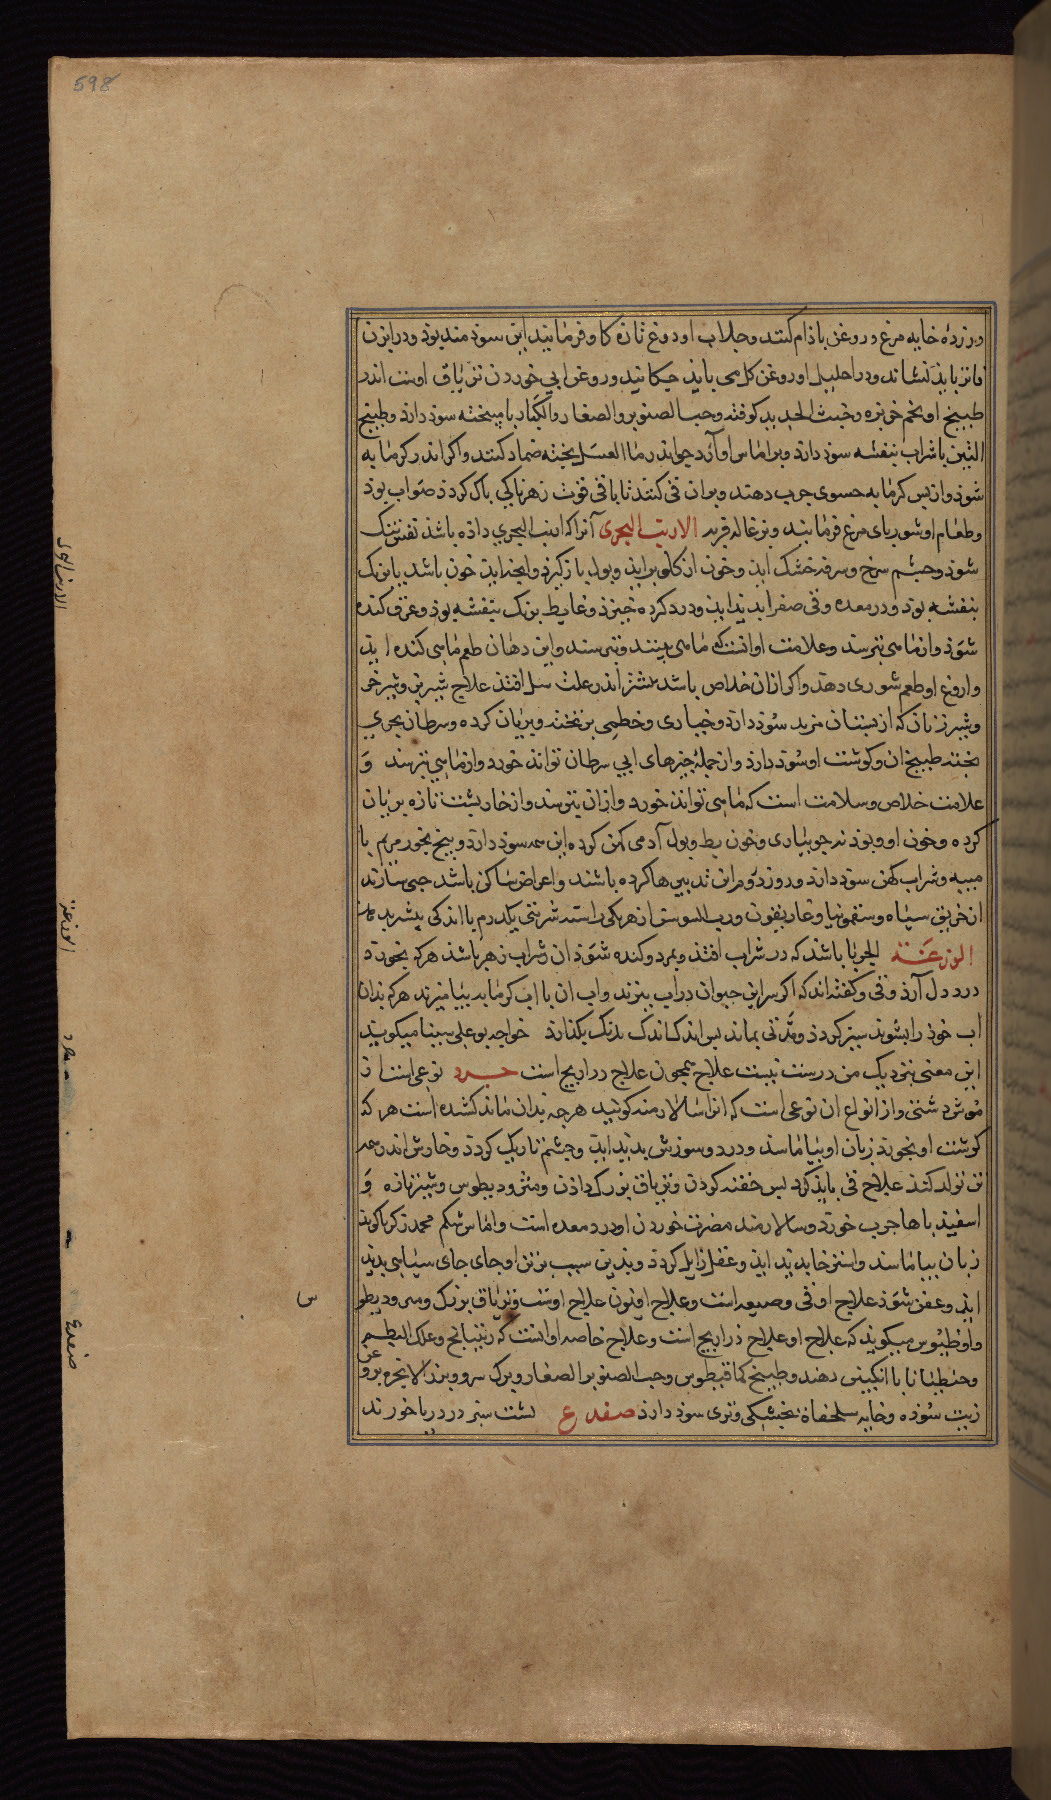 598
و زرده خایه مرغ و روغن باذام کنند و جلاب او دوغ تازه کاو فرمایند این سوذمند بوذ و در ابزن
فاتر بایذ نشاند و در احلیل او روغن کل می بایذ چکانید و روغن ابی خوردن تریاق اوست اندر
طبیخ او تخم خربزه و خبث الحدید کوفته و حب الصنوبر الصغار و الکبار بامیبخته سوذ دارذ و طبیخ
التین با شراب بنفشه سوذ دارذ و بر اماس او آرد جو اندر ما العسل پخته ضماد کنند و اکر اندر کرمابه
شوذ و از پس کرمابه حسوی چرب دهند و بر ان قی کنند تا باقی قوت زهر پاک کردذ صواب بوذ
و طعام او شوربای مرغ فرمایند و بزغاله فربه الارنب البحری آنرا که ارنب البحری داذه باشذ نفس تنک
شوذ و چشم سرخ و سرفه خشک ایذ و خون از کلو برایذ و بول باز کیرذ و انچه ایذ خون باشد یا برنک
بنفشه بوذ و درد معده و قی صفرا بدید ایذ و درد کرده خیزد و غایط برنک بنفشه بوذ و عرق کنده
شوذ و از ماهی بترسد و علامت او انست که ماهی بینند و بترسند و این دهان طعم ماهی کنده ایذ
و اروغ او طعم شوری دهد و اکر از ان خلاص باشد بیشتر اندر علت سل افتذ علاج شیر بز و شیر خر
و شیر زنان که از پستان مزید سوذ دارذ و خیاری و خطمی بر نخته و بریان کرده و سرطان بحری
پخته طبیخ ان و کوشت او سوذ دارذ و از جمله چیزهای ابی سرطان تواند خورد و از ماهی بترسد و
علامت خلاص و سلامت است که ماهی تواند خورد و از ان نترسد و از خارپشت تازه بریان
کرده و خون او و بوذنه جویباری و خون بط و بول آدمی کهن کرده این همه سوذ دارذ و بیخ بخور مریم با
میبه و شراب کهن سوذ دارذ و روز دوم این تدبیرها کرده باشند و اعراض ساکن باشد حبی سازند
از خربق سیاه و سقمونیا و غاریقون و رب السوس از هر یکی راستد شربتی یکدرم با اندکی
الوزغة الحربا باشذ که در شراب افتذ و بمرد و کنده شوذ ان شراب زهر باشذ هر که بخورد
درد دل آرذ و قی و کفته اند که اکر سر این حیوان در اب بپزند و اب ان با اب کرمابه بیامیزند هر که بذان
اب خوذ را بشوید سبز کردذ و مدتی بماند پس اندک اندک بدنک بکذارد خواجه بو علی سینا میکوید
این معنی نزدیک من درست نیست علاج همچون علاج ذراریح است حرد نوعی است از
موش دشتی و از انواع ان نوعی است که انرا سالامند کویند هر چه بدان ماند کشنده است هر که
کوشت او بخورد زبان او بیاماسد و درد و سوزش بدید ایذ و چشم تاریک کردد و خارش اندر همه
تن تولد کند علاج قی بایذ کرد پس حقنه کردن و تریاق بزرک داذن و مثرودیطوس و شیر تازه و
اسفیدباها چرب خورد و سالامند مضرت خوردن او درد معده است و اماس شکم محمد زکریا کوید
زبان بیاماسد و استرخا بدید ایذ و عقل زایل کردد و بدین سبب بر تن او جای جای سیاهی بدید
ایذ و عفن شوذ علاج او قی و صیعه است و علاج افیون علاج اوست و تریاق بزرک و مثرودیطو س
و اوفطیوس میکویذ که علاج او علاج ذراریح است و علاج خاصه او انست که ریتیانج و علک البطم
و جنطیانا با انکبین دهند و طبیخ کمافیطوس و حب الصنوبر الصغار و برک سرو و بزر الانجره بر و غن
زیت سوذه و خایه سلحفاة بخشکی و تری سوذ دارذ ضفدع بشت سبز در دریا خورند
الارنب البحری
الوزغة
حرد
ضفدع